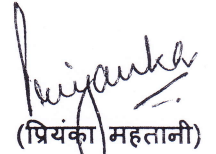 Priyanka
(प्रियंका महतानी)